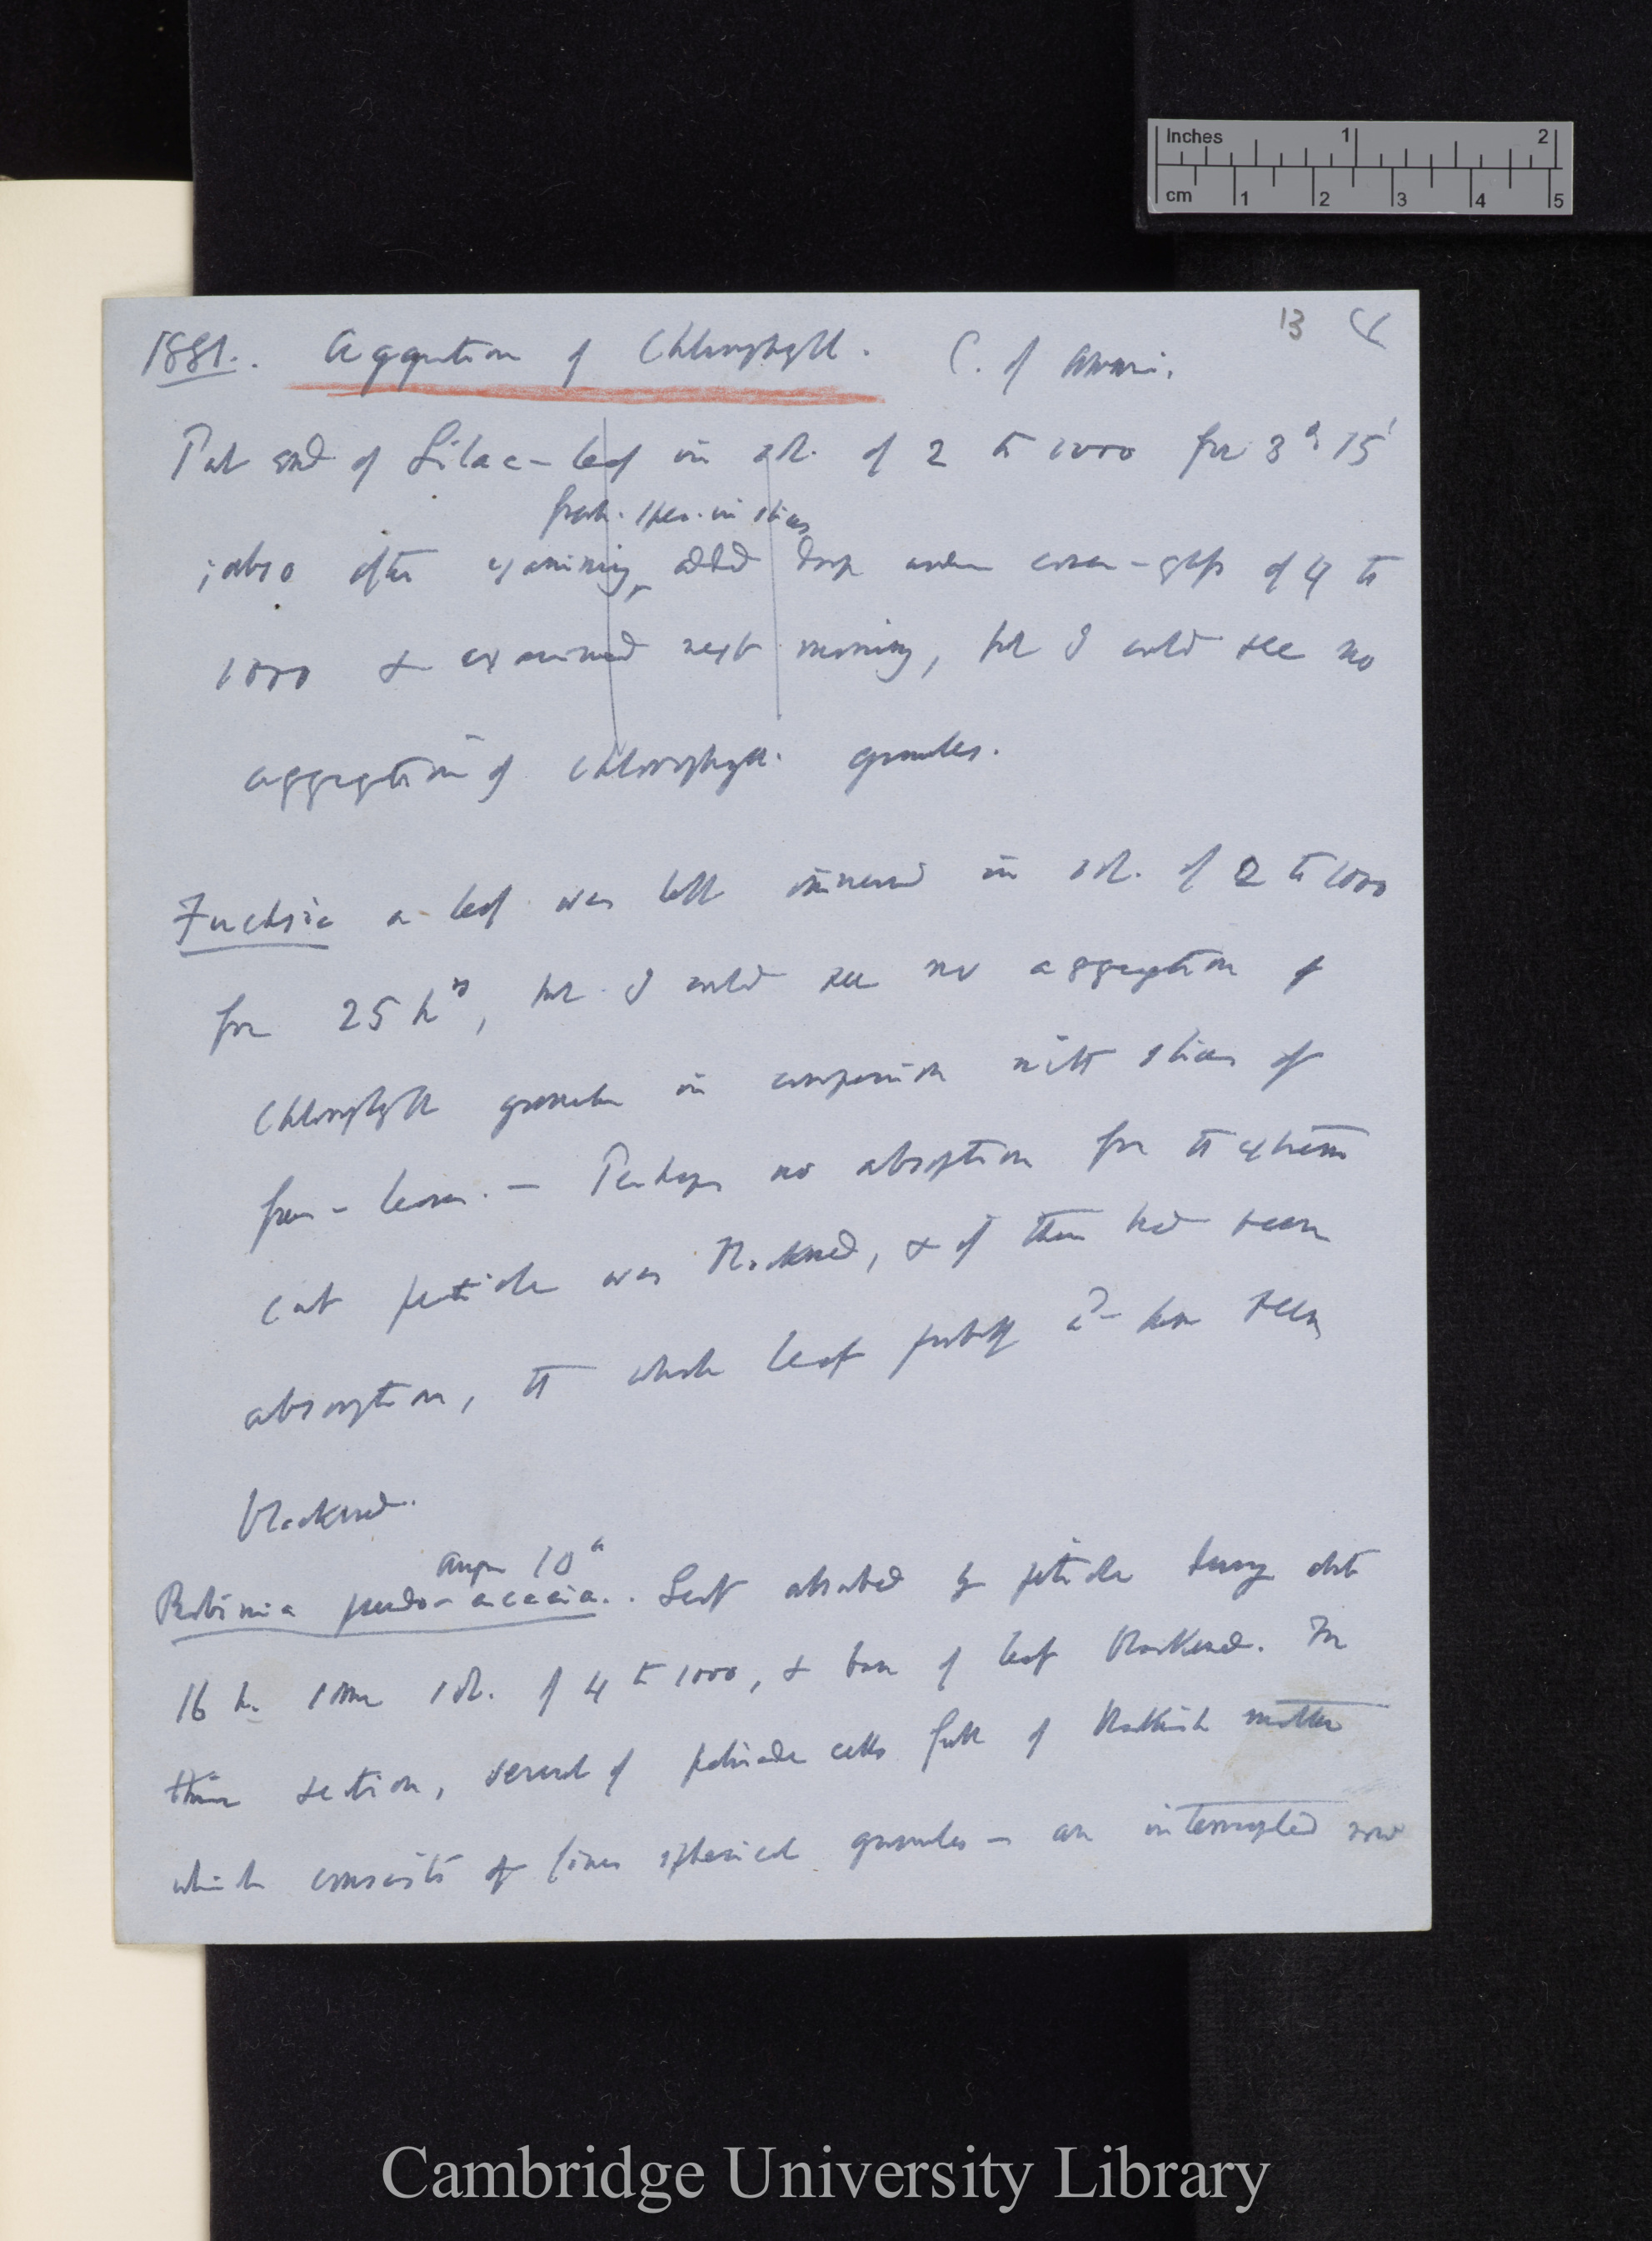 Inches 1 2
cm 1 2 3 4 5
13
1881. Aggregation of Chlorophyll. C. of Ammonia.
Put end of Lilac-leaf in sol. of 2 to 1000 for 3h 15'
fresh spec. in slices
; also after examining, added drop under cover-glass of 4 to
1000 & examined next morning, but I could see no
aggregation of chlorophyll granules.
Fuchsia a leaf was left immersed in sol. of 2 to 1000
for 25 hrs, but I could see no aggregation of
chlorophyll granules in comparison with slices of
fresh leaves. — Perhaps no absorption for the extreme
cut petiole was blackened, & if there had been
absorption, the whole leaf probably wd have been
blackened.
Aug 10th
Robinia pseudo-acacia. Leaf absorbed by petiole during
16 h. some sol. of 4 to 1000, & base of leaf blackened. In
thin section, several of palisade cells full of blackish matter
which consists of fines spherical granules — an interrupted row
Cambridge University Library